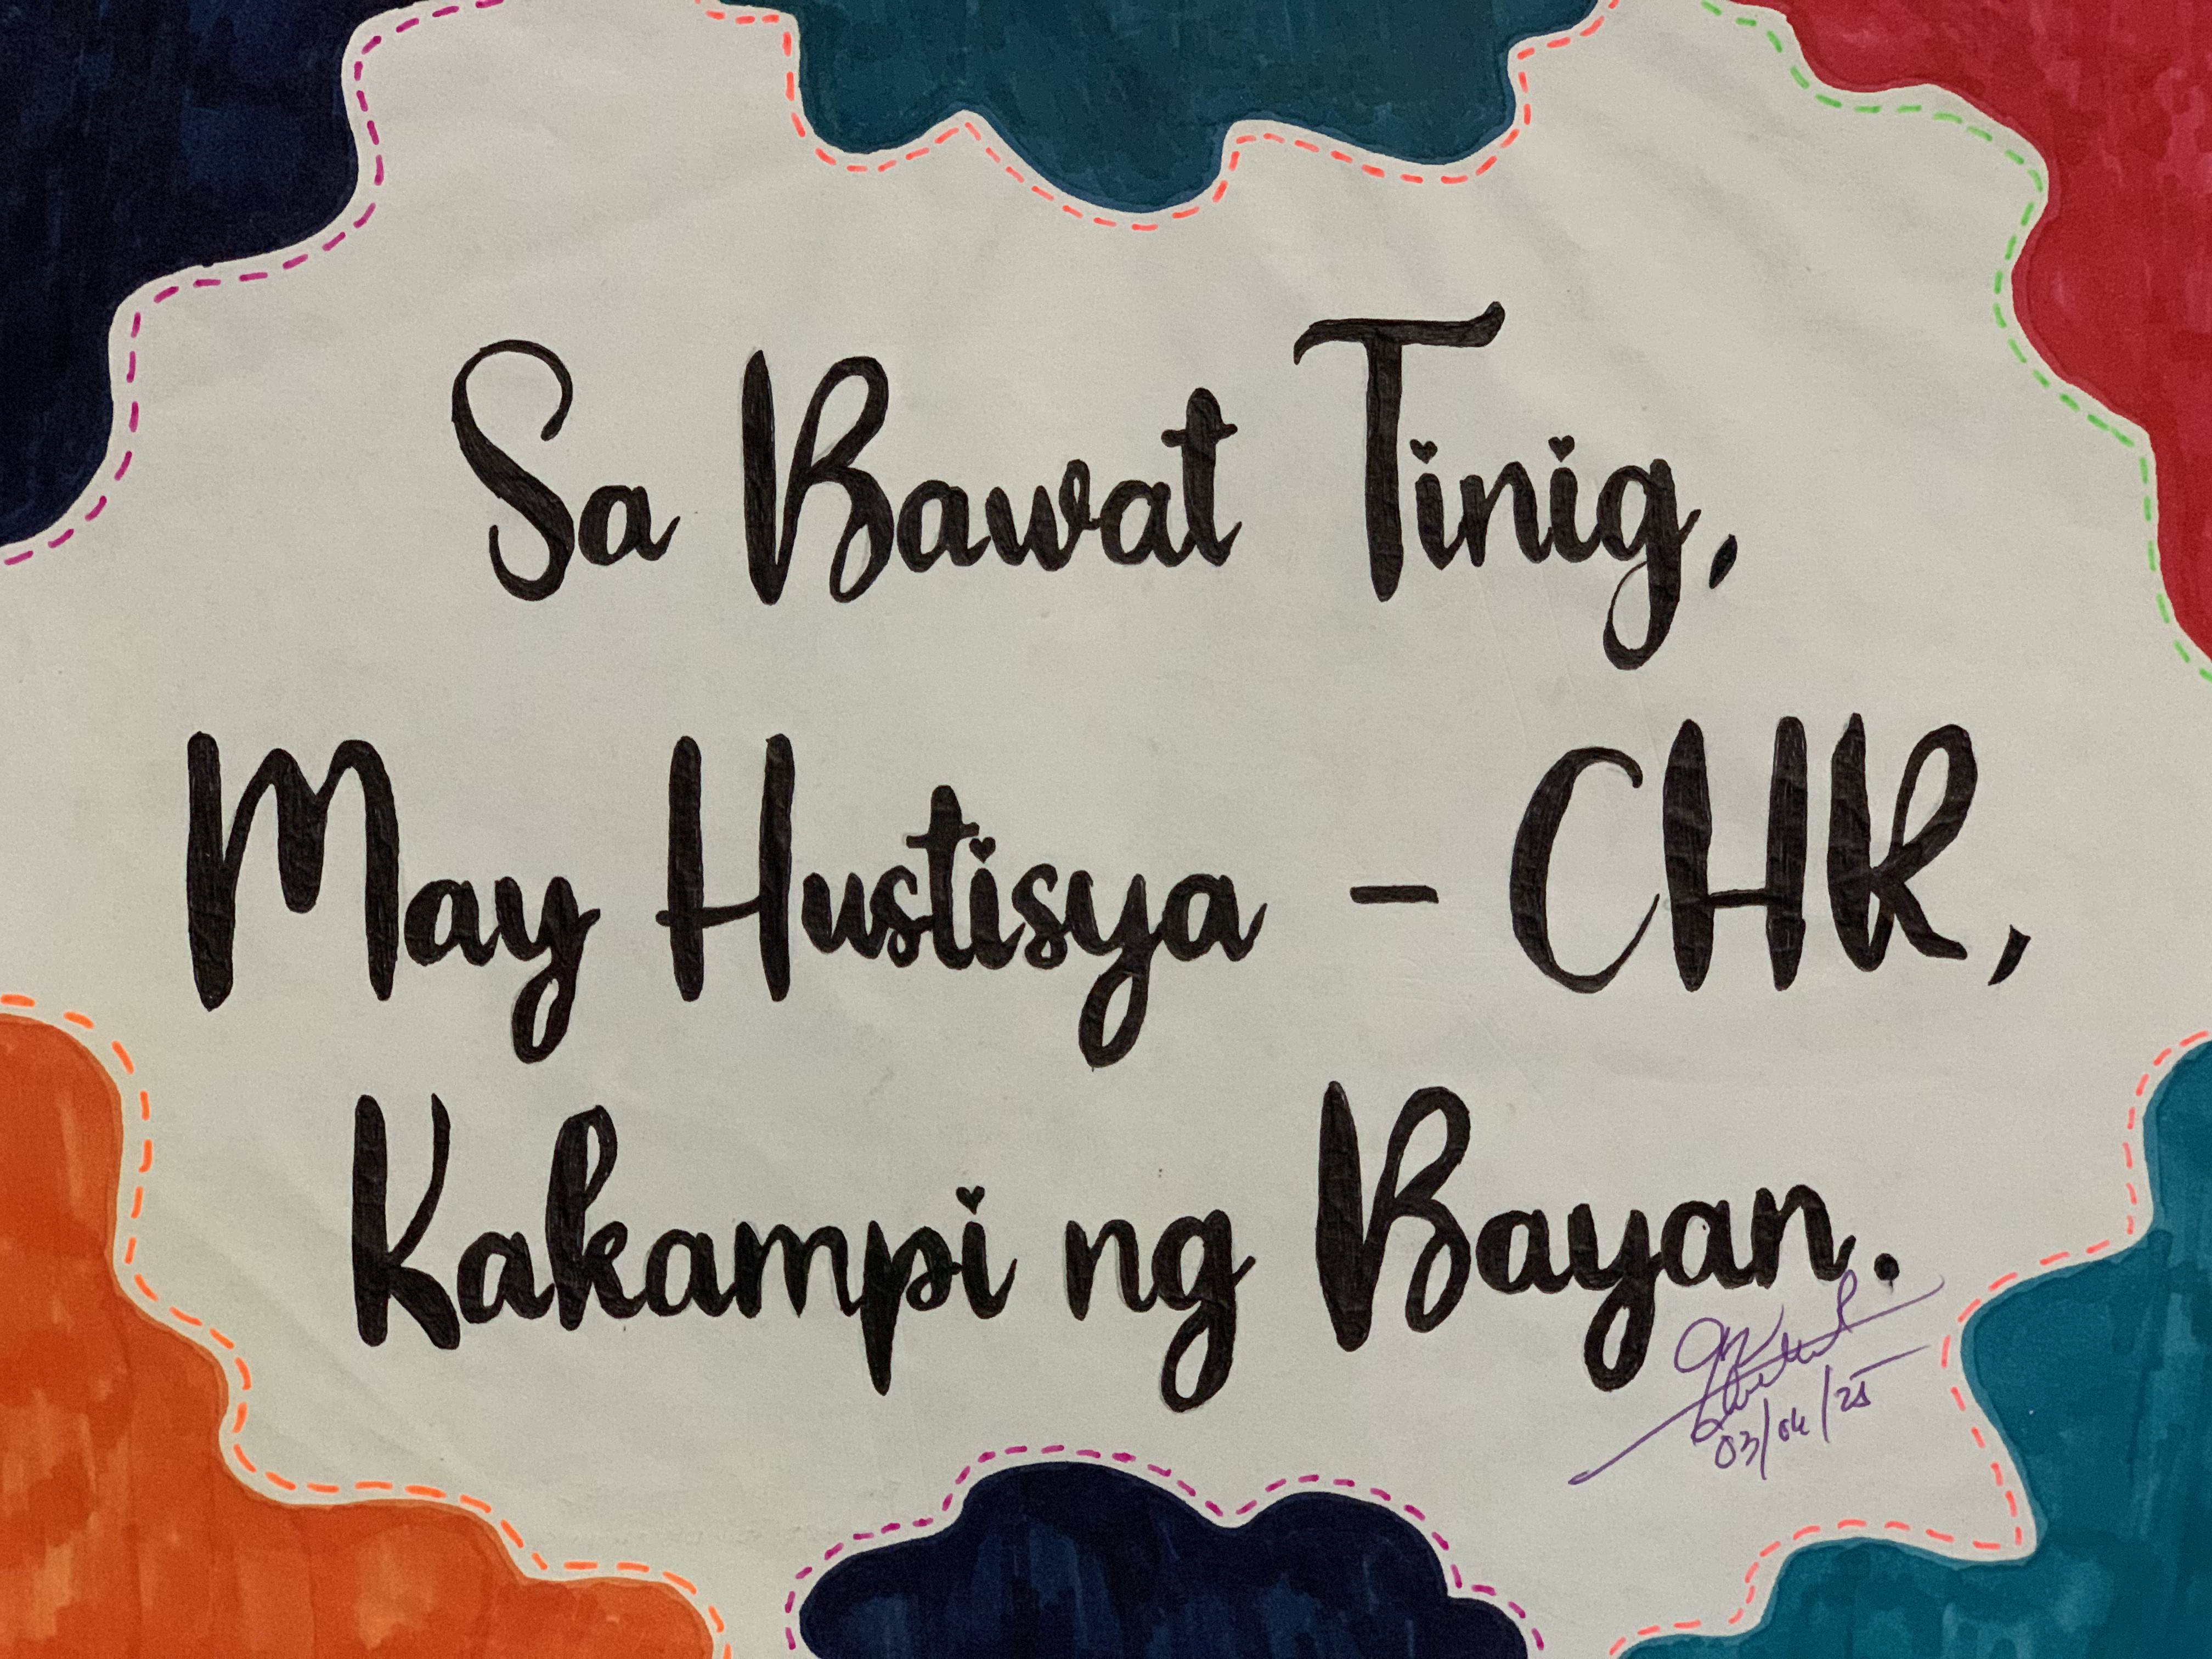 Sa Bawat Tinig,
May Hustisya - CHR,
Kakampi ng Bayan.
03/04/25